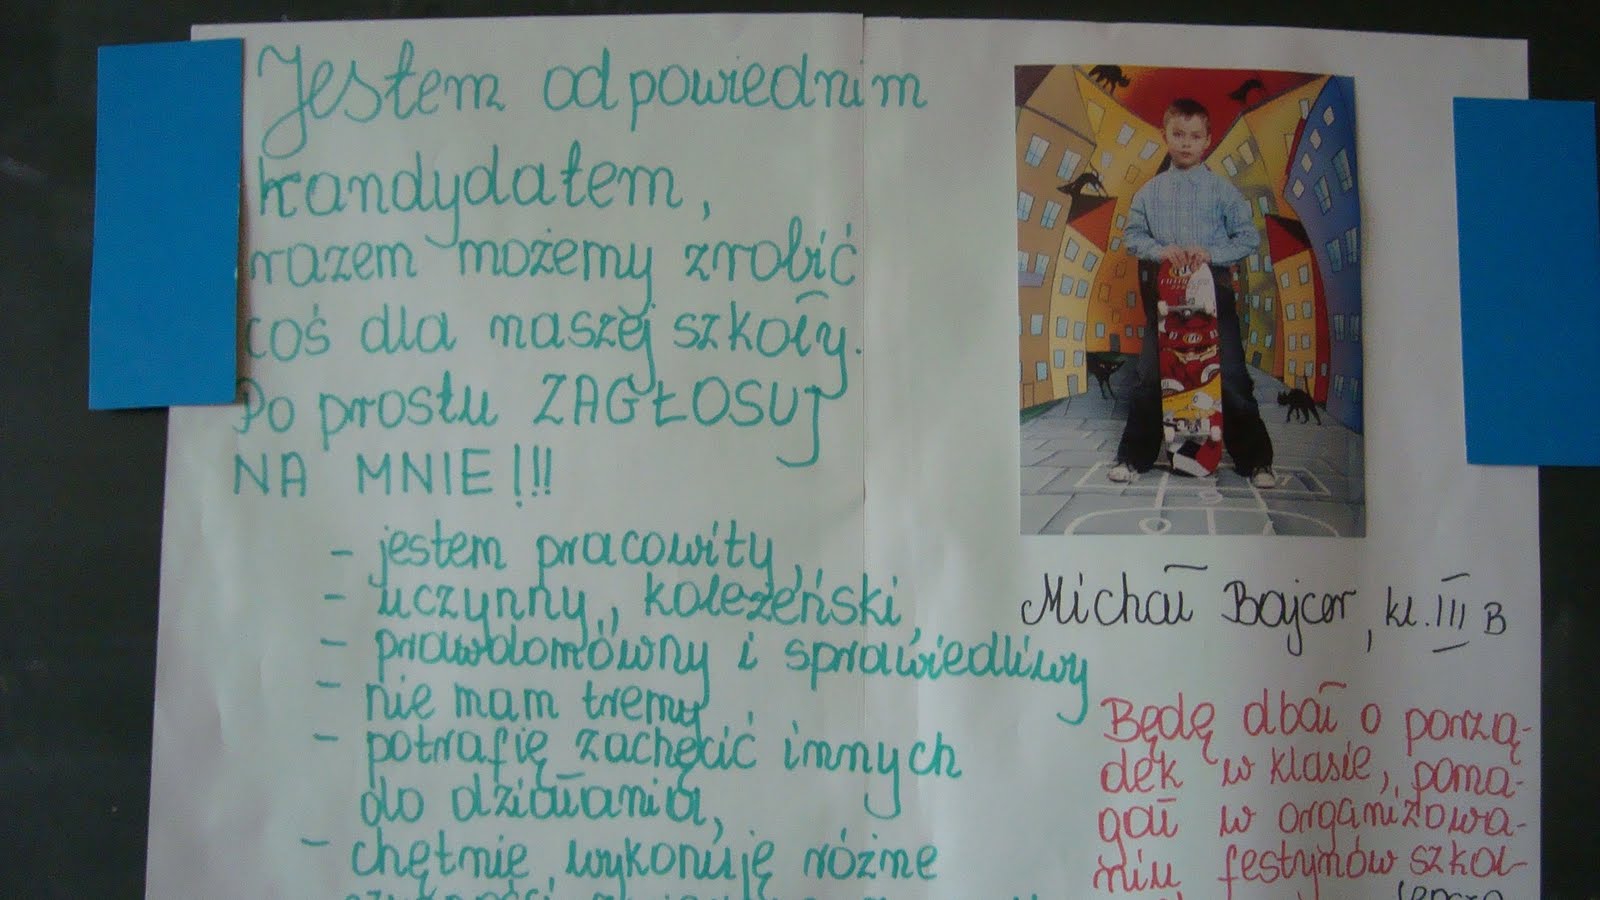 Jestem odpowiednim
kandydatem,
razem możemy zrobić
coś dla naszej szkoły.
Po prostu ZAGŁOSUJ
NA MNIE!!!
- jestem pracowity,
- uczynny, koleżeński,
- prawdomówny i sprawiedliwy
- nie mam tremy,
- potrafię zachęcić innych
do działania,
- chętnie wykonuję różne
Michał Bajcar, kl. III B
Będę dbał o porzą-
dek w klasie, poma-
gał w organizowa-
niu festynów szkol-